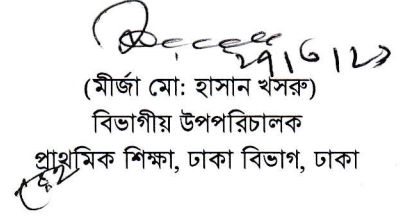 ২৭/৬/২৩
(মীর্জা মো: হাসান খসরু)
বিভাগীয় উপপরিচালক
প্রাথমিক শিক্ষা, ঢাকা বিভাগ, ঢাকা